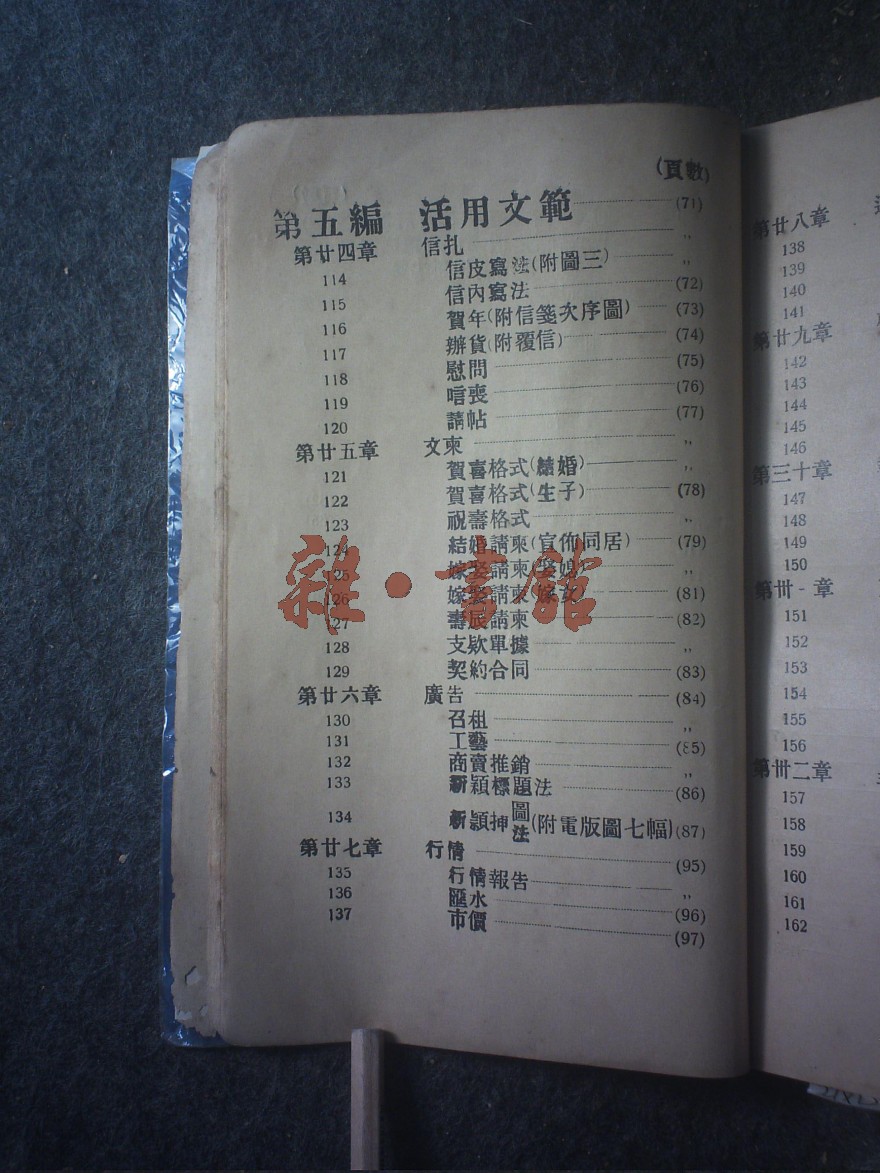 (頁數)
第五編 活用文範 (71)
第廿四章 信扎 ,,
114 信皮寫法(附圖三) ,,
115 信內寫法 (72)
116 賀年(附信箋次序圖) (73)
117 辦貨(附覆信) (74)
118 慰問 (75)
119 唁喪 (76)
120 請帖 (77)
第廿五章 文柬 ,,
121 賀喜格式(結婚) ,,
122 賀喜格式(生子) (78)
123 祝壽格式 ,,
124 結婚請柬(宣佈同居) (79)
125 嫁娶請柬(娶媳) ,,
126 嫁娶請柬(嫁女) (81)
127 壽辰請柬 (82)
128 支欵單據 ,,
129 契約合同 (83)
第廿六章 廣告 (84)
130 召租 ,,
131 工藝 (85)
132 商賣推銷 ,,
133 新穎標題法 (86)
134 新穎抻圖法(附電版圖七幅) (87)
第廿七章 行情 (95)
135 行情報告 ,,
136 匯水 (96)
137 市價 (97)
雜·書館
第廿八章
138
139
140
141
第廿九章
142
143
144
145
146
第三十章
147
148
149
150
第卅-章
151
152
153
154
155
156
第卅二章
157
158
159
160
161
162